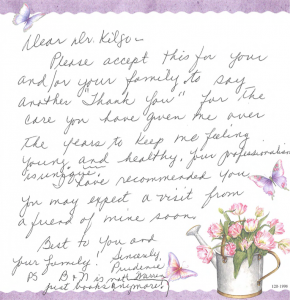 Dear Dr. Kilgo–
Please accept this for your
and/or your family to say
another "Thank You" for the
care you have given me over
the years to keep me feeling
young and healthy. Your professionalism
is unique!
I have recommended you
You may expect a visit from
a friend of mine soon.
Best to You and
your family! Sincerely,
Prudence
PS B&N is not
just books anymore!